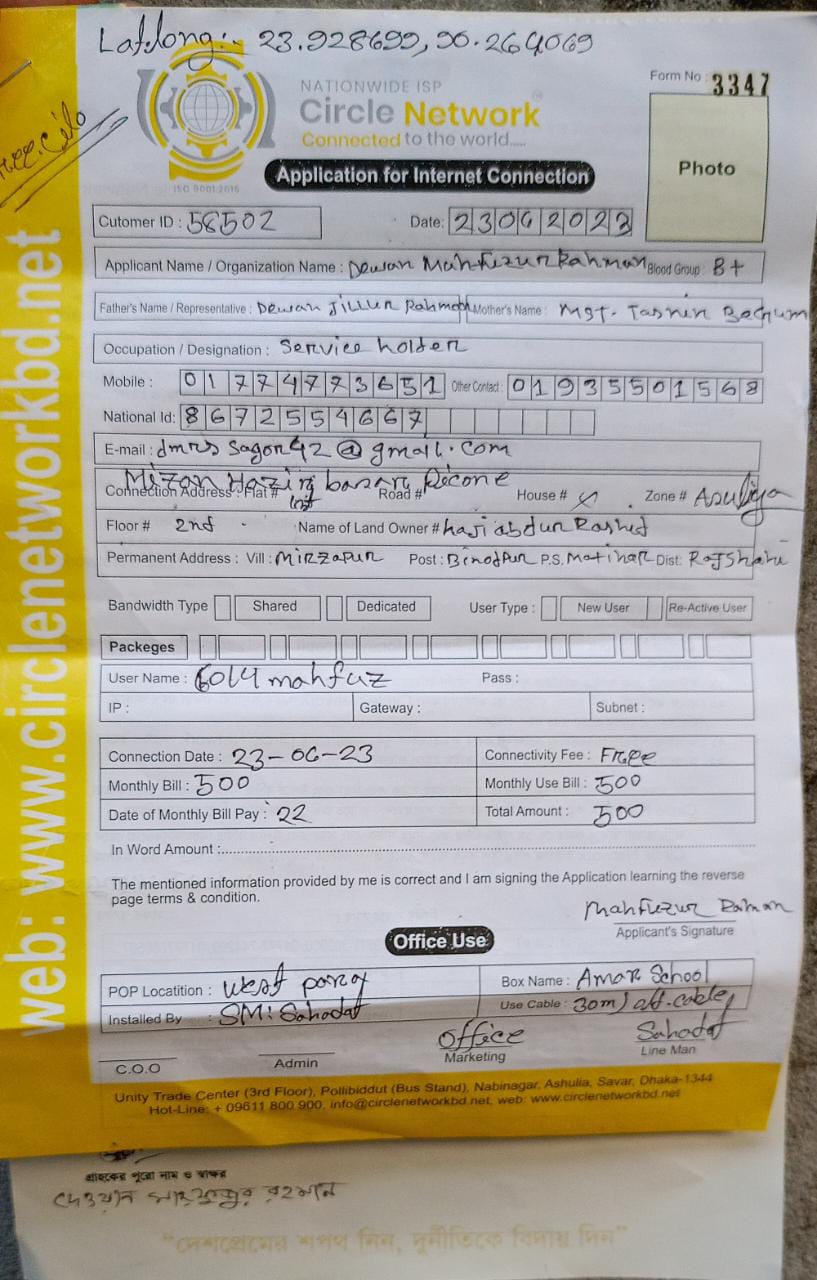 Lat.long:- 23.928699, 90.264069
NATIONWIDE ISP
Circle Network
Connected to the world.....
ISO 9001:2015
Form No : 3347
Photo
Application for Internet Connection
Cutomer ID : 58502 Date: 23062023
Applicant Name / Organization Name : Dewan Mahfuzur Rahman Blood Group : B+
Father's Name / Representative : Dewan Jillur Rahman Mother's Name : Mst. Tasnin Begum
Occupation / Designation : Service holder
Mobile : 01774773651 Other Contact : 01935501568
National Id: 8672554667
E-mail : dmrssagor42@gmail.com
Mizan Hazir bazar,
Connection Address : Flat # Road # House # Zone # Asuliya
Floor # 2nd Name of Land Owner # haji abdur Rashid
Permanent Address : Vill : Mirzapur Post : Binodpur P.S. Matihar Dist: Rajshahi
Bandwidth Type Shared Dedicated User Type : New User Re-Active User
Packeges
User Name : mahfuz Pass :
IP : Gateway : Subnet :
Connection Date : 23-06-23 Connectivity Fee : Free
Monthly Bill : 500 Monthly Use Bill : 500
Date of Monthly Bill Pay : 22 Total Amount : 500
In Word Amount :
The mentioned information provided by me is correct and I am signing the Application learning the reverse
page terms & condition.
Mahfuzur Rahman
Applicant's Signature
Office Use
POP Locatition : West para Box Name : Amar School
Installed By : SM: Sahadat Use Cable : 30m
Office Sahadat
C.O.O Admin Marketing Line Man
Unity Trade Center (3rd Floor), Pollibiddut (Bus Stand), Nabinagar, Ashulia, Savar, Dhaka-1344
Hot-Line: + 09611 800 900, info@circlenetworkbd.net, web: www.circlenetworkbd.net
web: www.circlenetworkbd.net
গ্রাহকের পুরো নাম ও স্বাক্ষর
দেওয়ান মাহফুজুর রহমান
“দেশপ্রেমের শপথ নিন, দুর্নীতিকে বিদায় দিন”